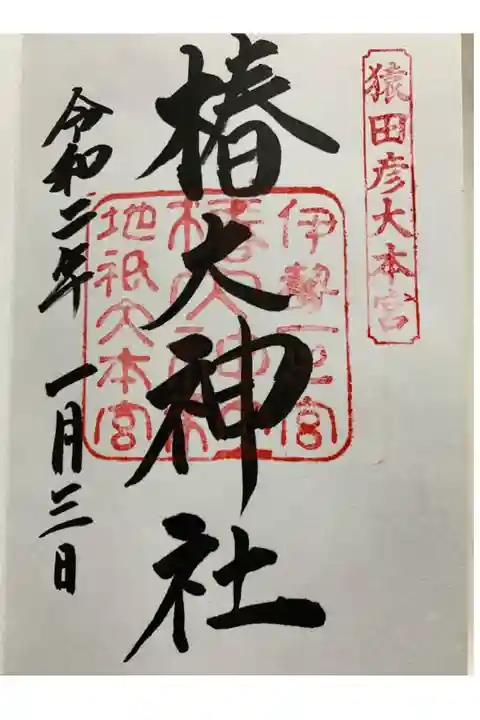 猿田彦大本宮
伊勢一宮
椿大神社
地祇大本宮
椿大神社
令和二年 一月三日